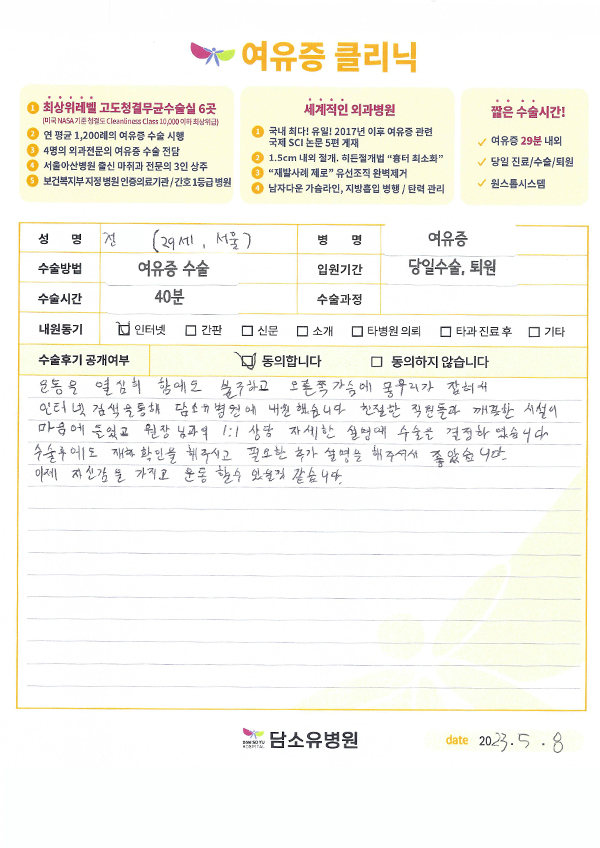 여유증 클리닉
1 최상위레벨 고도청결무균수술실 6곳
(미국 NASA 기준 청결도 Cleanliness Class 10,000 이하 최상위급)
2 연 평균 1,200례의 여유증 수술 시행
3 4명의 외과전문의 여유증 수술 전담
4 서울아산병원 출신 마취과 전문의 3인 상주
5 보건복지부 지정 병원 인증의료기관 / 간호 1등급 병원
세계적인 외과병원
1 국내 최다! 유일! 2017년 이후 여유증 관련
국제 SCI 논문 5편 게재
2 1.5cm 내외 절개. 히든절개법 “흉터 최소화”
3 “재발사례 제로” 유선조직 완벽제거
4 남자다운 가슴라인, 지방흡입 병행 / 탄력 관리
짧은 수술시간!
✓ 여유증 29분 내외
✓ 당일 진료/수술/퇴원
✓ 원스톱시스템
성 명 전 (29세, 서울) 병 명 여유증
수술방법 여유증 수술 입원기간 당일수술, 퇴원
수술시간 40분 수술과정
내원동기 ☑ 인터넷 ☐ 간판 ☐ 신문 ☐ 소개 ☐ 타병원 의뢰 ☐ 타과 진료 후 ☐ 기타
수술후기 공개여부 ☑ 동의합니다 ☐ 동의하지 않습니다
운동을 열심히 함에도 불구하고 오른쪽가슴에 몽우리가 잡혀서
인터넷 검색을 통해 담소유병원에 내원했습니다 친절한 직원들과 깨끗한 시설이
마음에 들었고 원장님과의 1:1 상담 자세한 설명에 수술을 결정하였습니다
수술후에도 재차 확인을 해주시고 필요한 추가 설명을 해주셔서 좋았습니다.
이제 자신감을 가지고 운동 할수 있을것 같습니다.
DAMSOYU HOSPITAL 담소유병원
date 2023. 5. 8